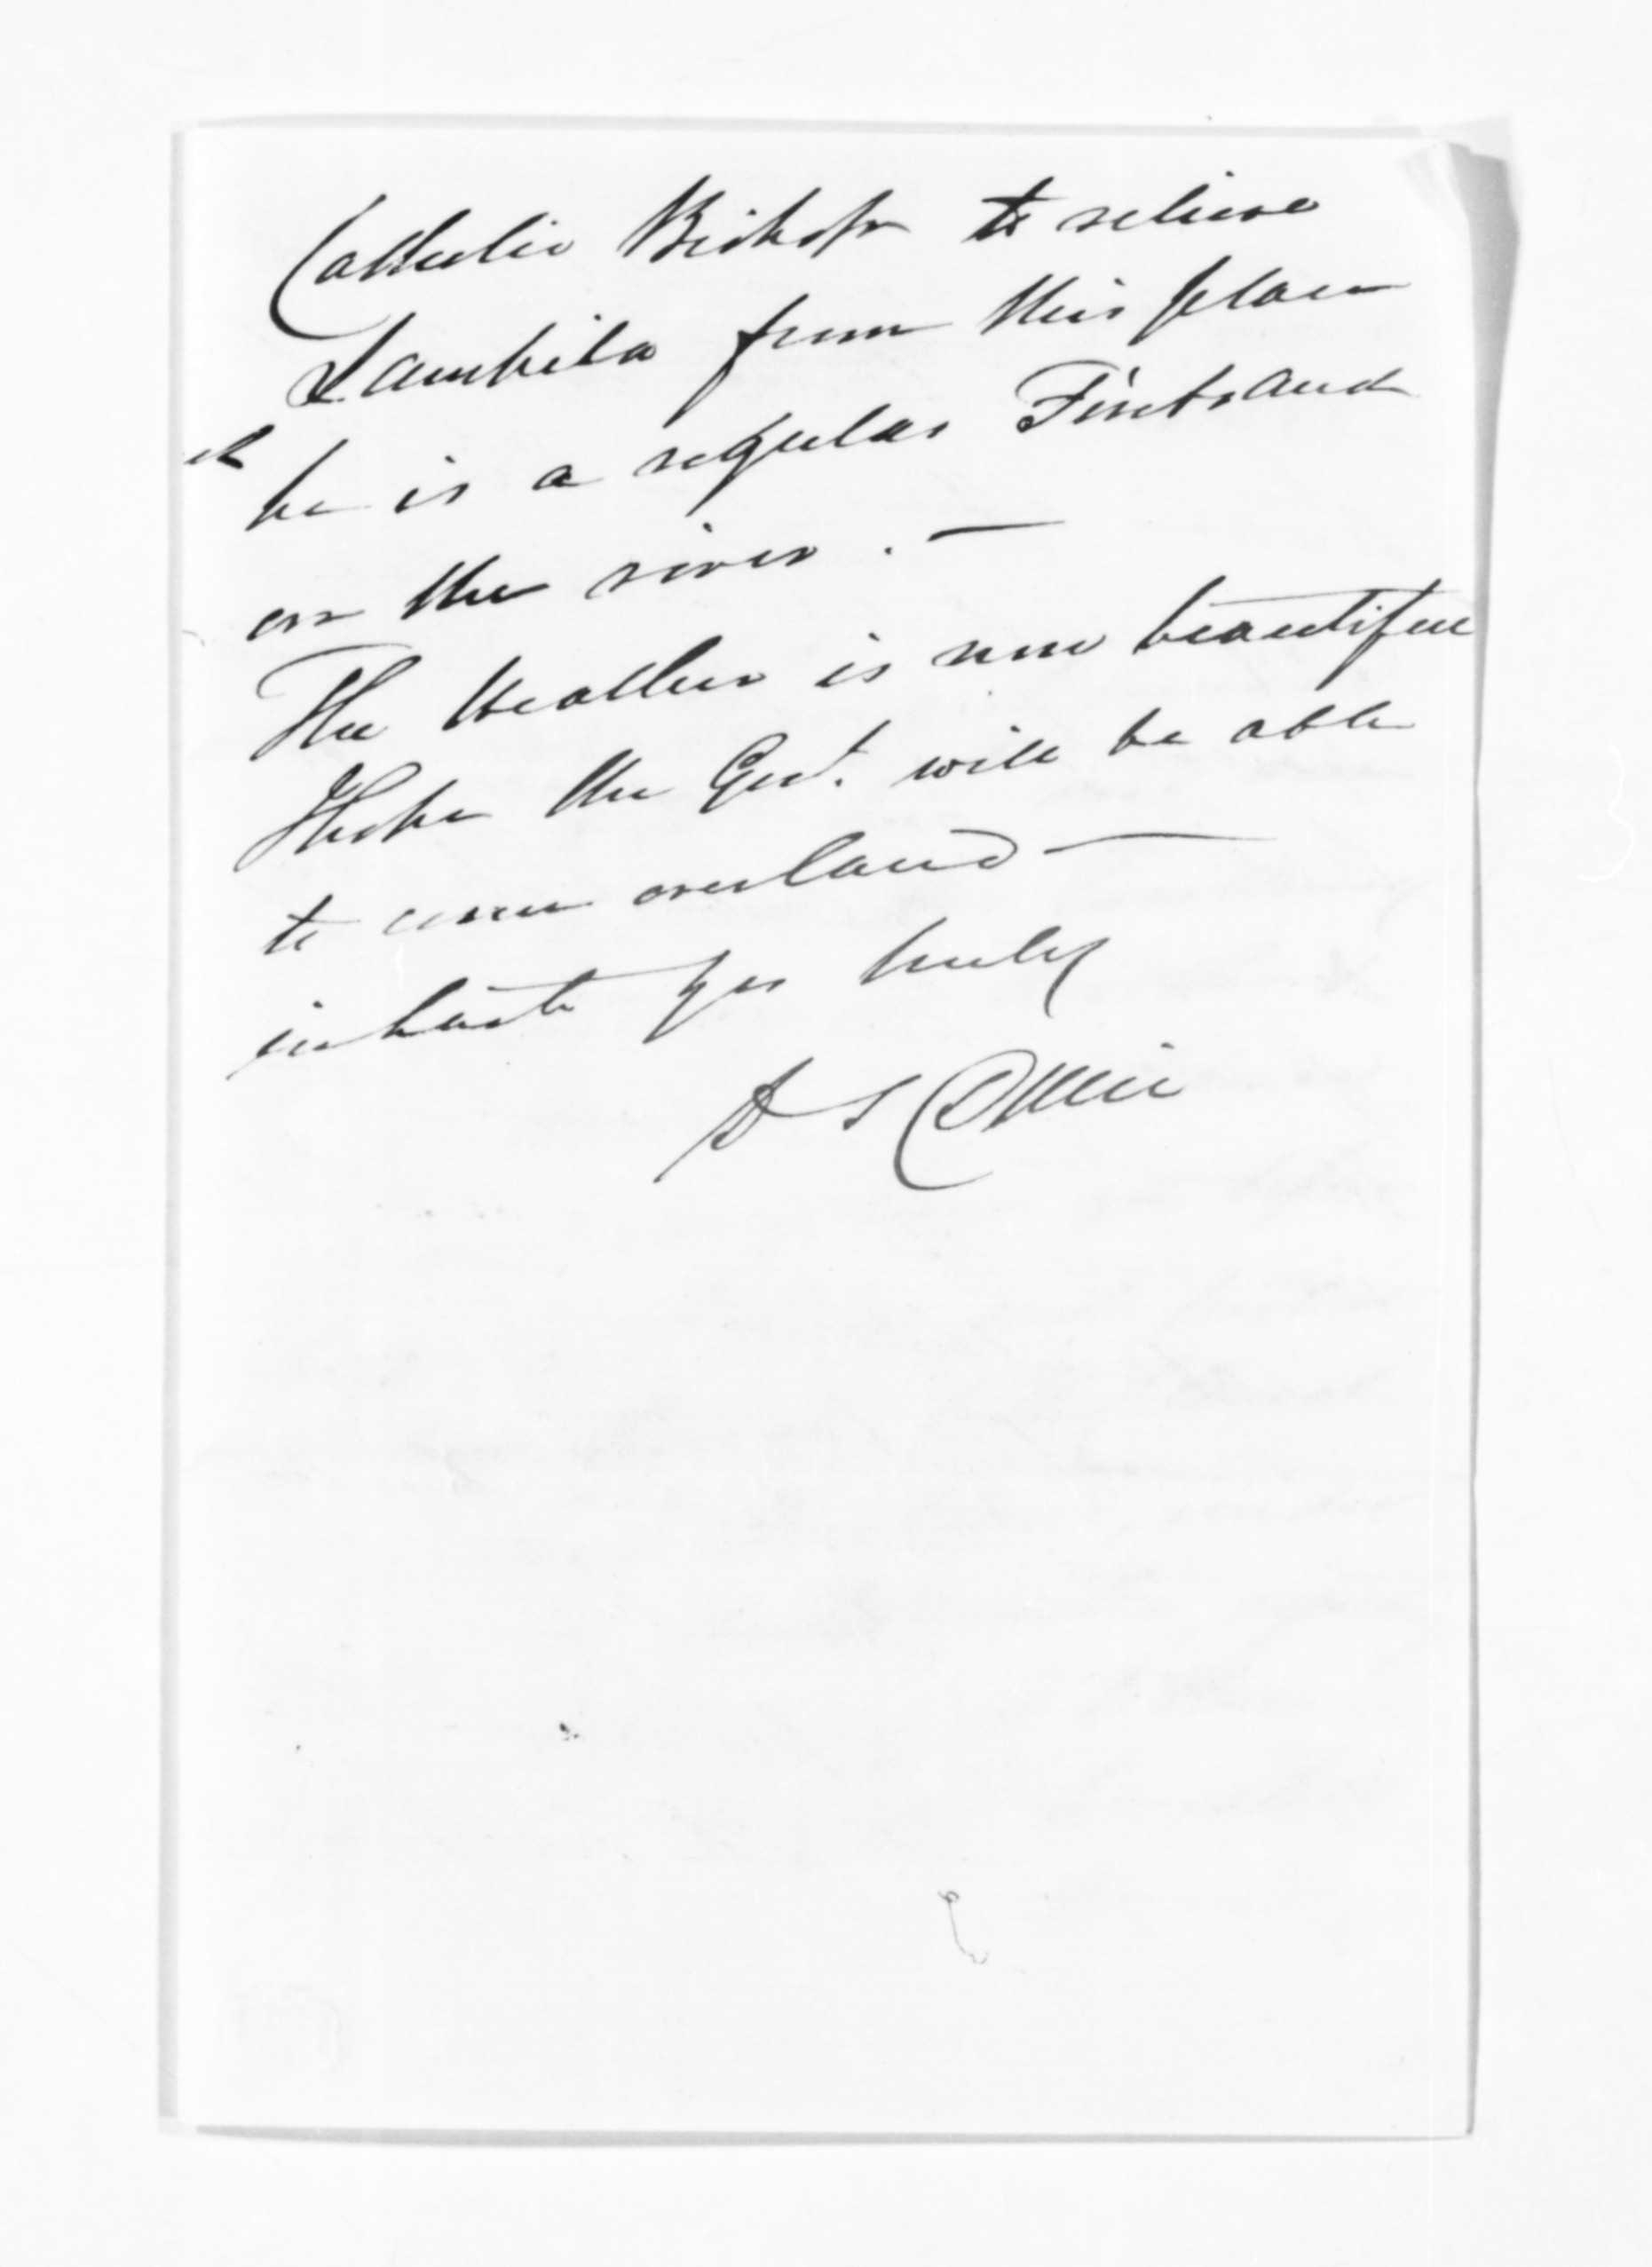 Catholic Bishop to relieve
Lampila from this place
he is a regular Firebrand
on the river . —
The Weather is now beautiful
Hope the Govt. will be able
to come overland —
in haste yrs truly
D S Durie